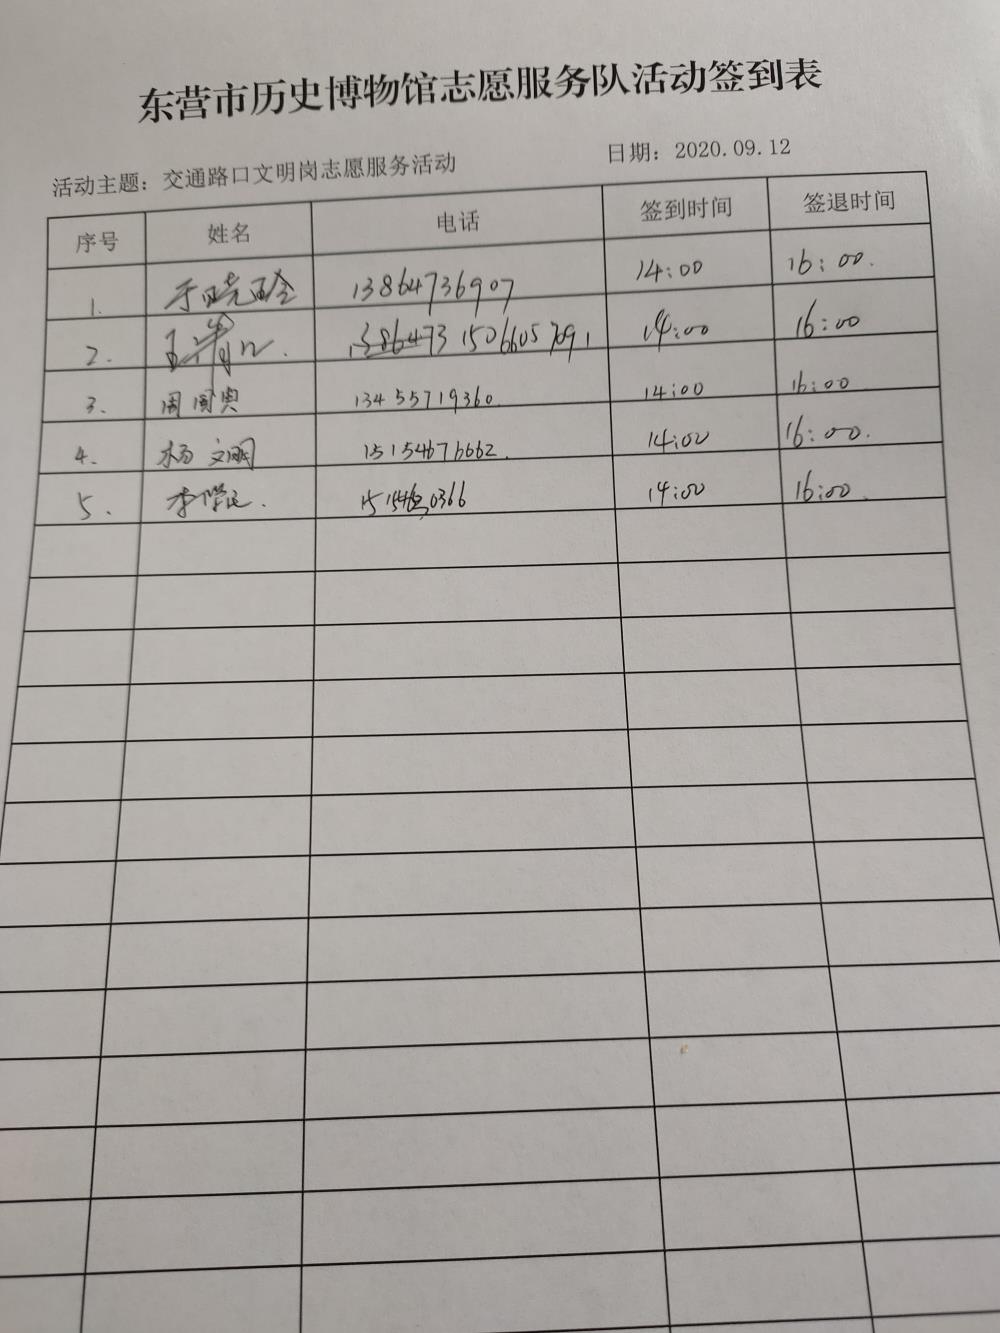 东营市历史博物馆志愿服务队活动签到表
活动主题：交通路口文明岗志愿服务活动 日期：2020.09.12
序号 姓名 电话 签到时间 签退时间
1. 于晓玲 13864736907 14:00 16:00.
2. 1386473 15066057091 14:00 16:00
3. 周国典 13455719360 14:00 16:00
4. 杨文明 15154676662. 14:00 16:00.
5. 李学正. 0366 14:00 16:00